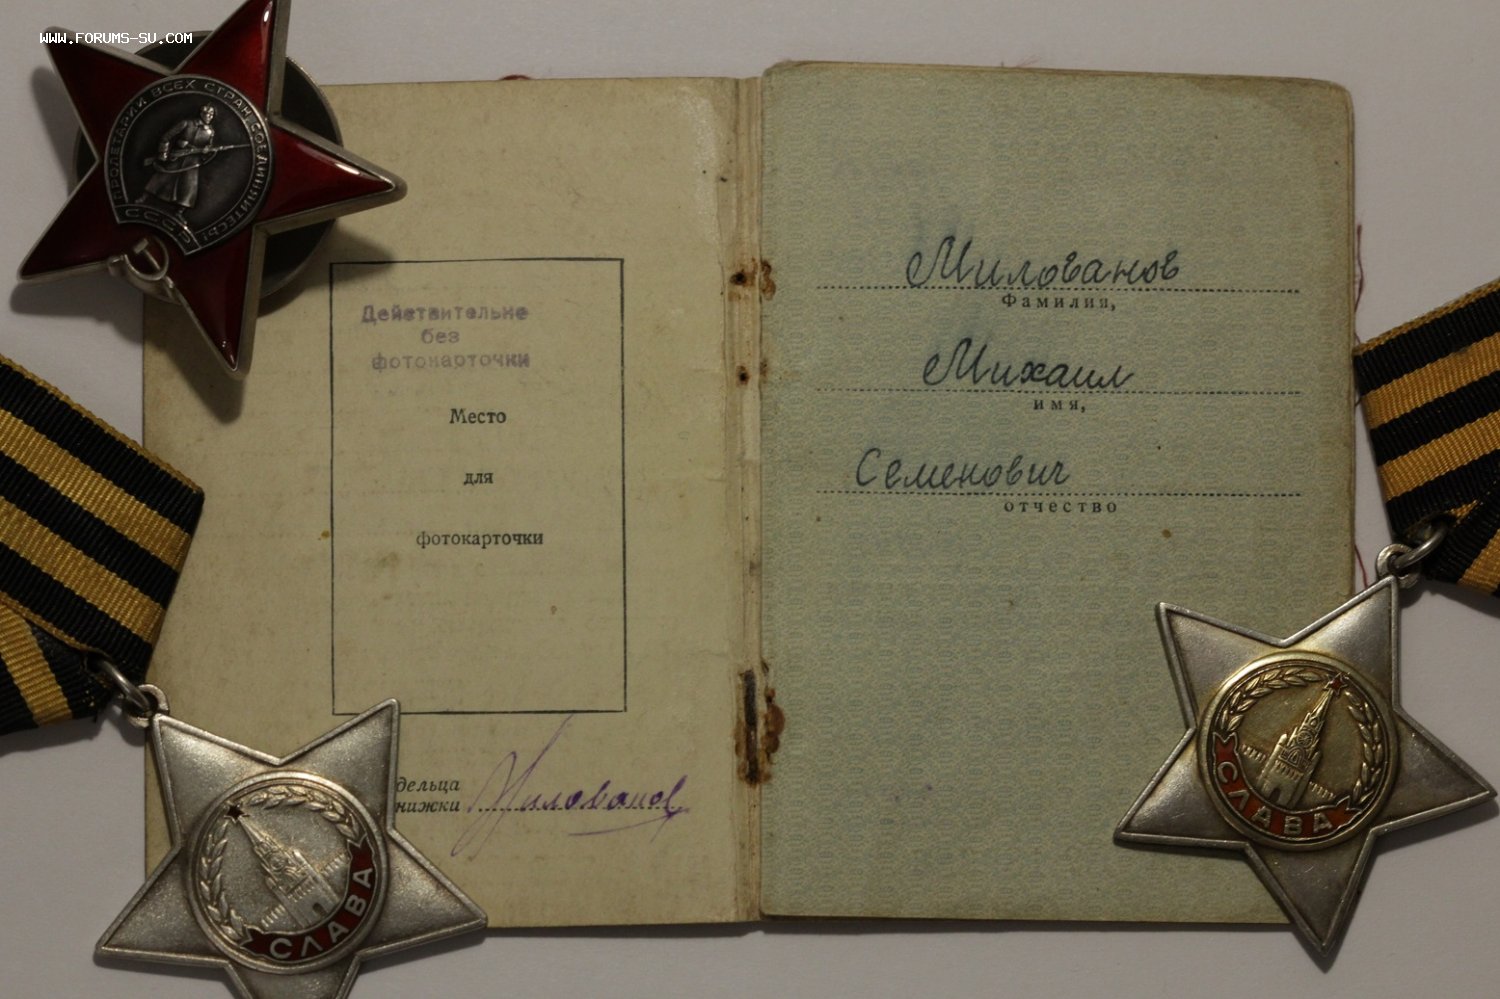 WWW.FORUMS-SU.COM
ПРОЛЕТАРИИ ВСЕХ СТРАН, СОЕДИНЯЙТЕСЬ!
СССР
Действительно
без
фотокарточки
Место
для
фотокарточки
дельца
нижки Милованов
Милованов
Фамилия,
Михаил
имя,
Семенович
отчество
СЛАВА
СЛАВА